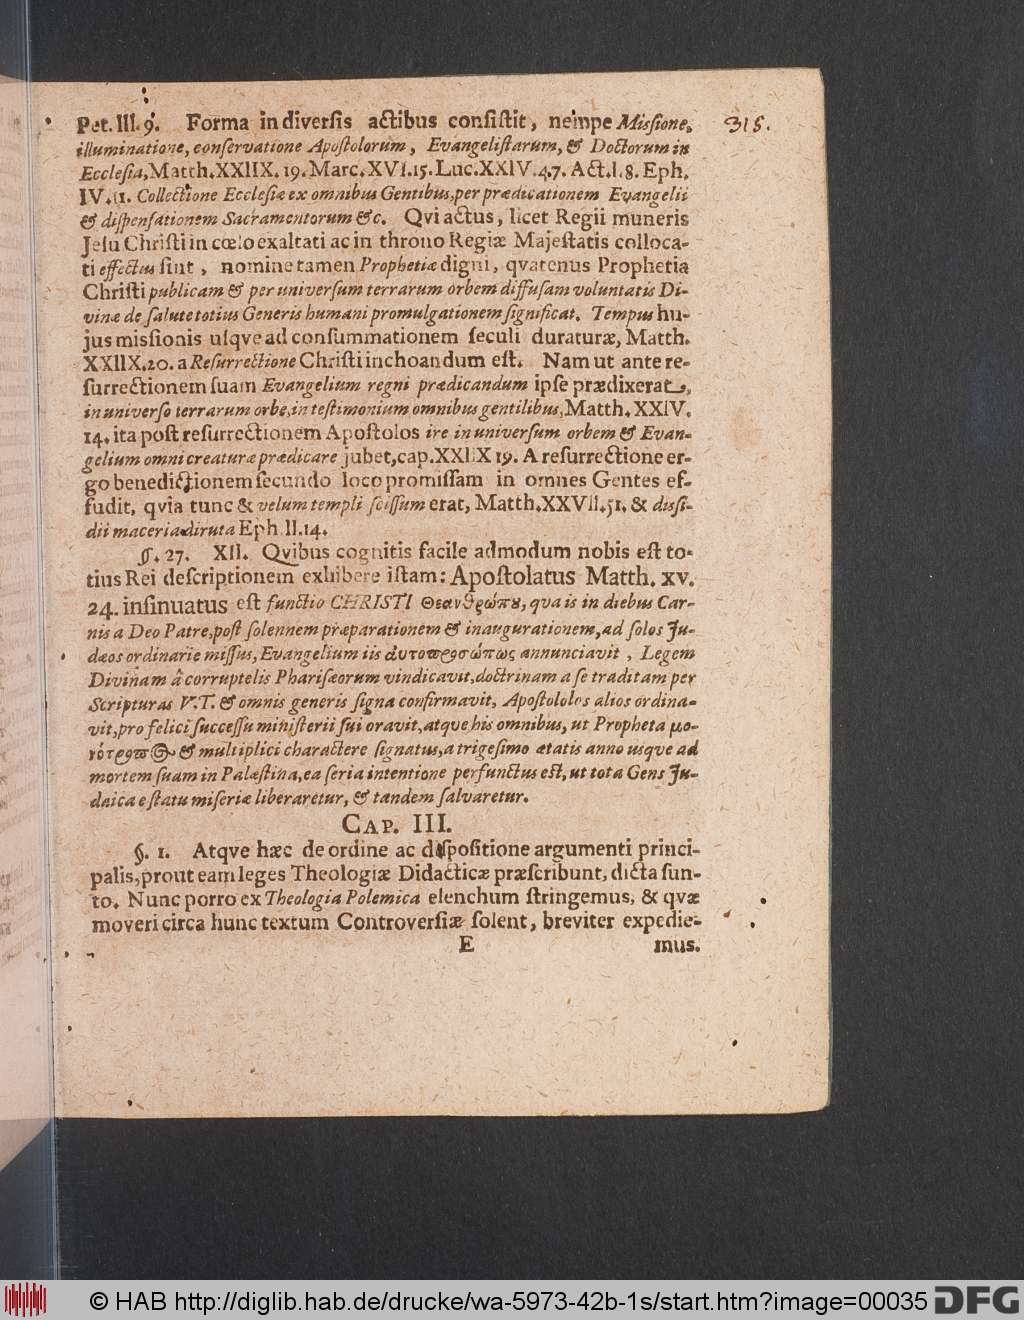 Pet. III. 9. Forma in diversis actibus consistit, nempe Missione,
315.
illuminatione, conservatione Apostolorum, Evangelistarum, & Doctorum in
Ecclesia, Matth. XXIIX. 19. Marc. XVI. 15. Luc. XXIV. 47. Act. I. 8. Eph.
IV. 11. Collectione Ecclesiæ ex omnibus Gentibus, per prædicationem Evangelii
& dispensationem Sacramentorum &c. Qvi actus, licet Regii muneris
Jesu Christi in cœlo exaltati ac in throno Regiæ Majestatis colloca-
ti effectus sint, nomine tamen Prophetiæ digni, qvatenus Prophetia
Christi publicam & per universum terrarum orbem diffusam voluntatis Di-
vinæ de salute totius Generis humani promulgationem significat. Tempus hu-
jus missionis usqve ad consummationem seculi duraturæ, Matth.
XXIIX. 20. a Resurrectione Christi inchoandum est. Nam ut ante re-
surrectionem suam Evangelium regni prædicandum ipse prædixerat,
in universo terrarum orbe, in testimonium omnibus gentilibus, Matth. XXIV.
14. ita post resurrectionem Apostolos ire in universum orbem & Evan-
gelium omni creaturæ prædicare jubet, cap. XXIIX 19. A resurrectione er-
go benedictionem secundo loco promissam in omnes Gentes ef-
fudit, qvia tunc & velum templi scissum erat, Matth. XXVII. 51. & dissi-
dii maceria diruta Eph. II. 14.
§. 27. XII. Qvibus cognitis facile admodum nobis est to-
tius Rei descriptionem exhibere istam: Apostolatus Matth. XV.
24. insinuatus est functio CHRISTI Θεανθρώπȣ, qva is in diebus Car-
nis a Deo Patre, post solennem præparationem & inaugurationem, ad solos Ju-
dæos ordinarie missus, Evangelium iis αὐτοπροσώπως annunciavit, Legem
Divinam â corruptelis Pharisæorum vindicavit, doctrinam a se traditam per
Scripturas V. T. & omnis generis signa confirmavit, Apostololos alios ordina-
vit, pro felici successu ministerii sui oravit, atque his omnibus, ut Propheta μο-
νότροπ@ & multiplici charactere signatus, a trigesimo ætatis anno usque ad
mortem suam in Palæstina, ea seria intentione perfunctus est, ut tota Gens Ju-
daica e statu miseriæ liberaretur, & tandem salvaretur.
CAP. III.
§. 1. Atqve hæc de ordine ac dispositione argumenti princi-
palis, prout eam leges Theologiæ Didacticæ præscribunt, dicta sun-
to. Nunc porro ex Theologia Polemica elenchum stringemus, & qvæ
moveri circa hunc textum Controversiæ solent, breviter expedie-
E
mus.
© HAB http://diglib.hab.de/drucke/wa-5973-42b-1s/start.htm?image=00035
DFG